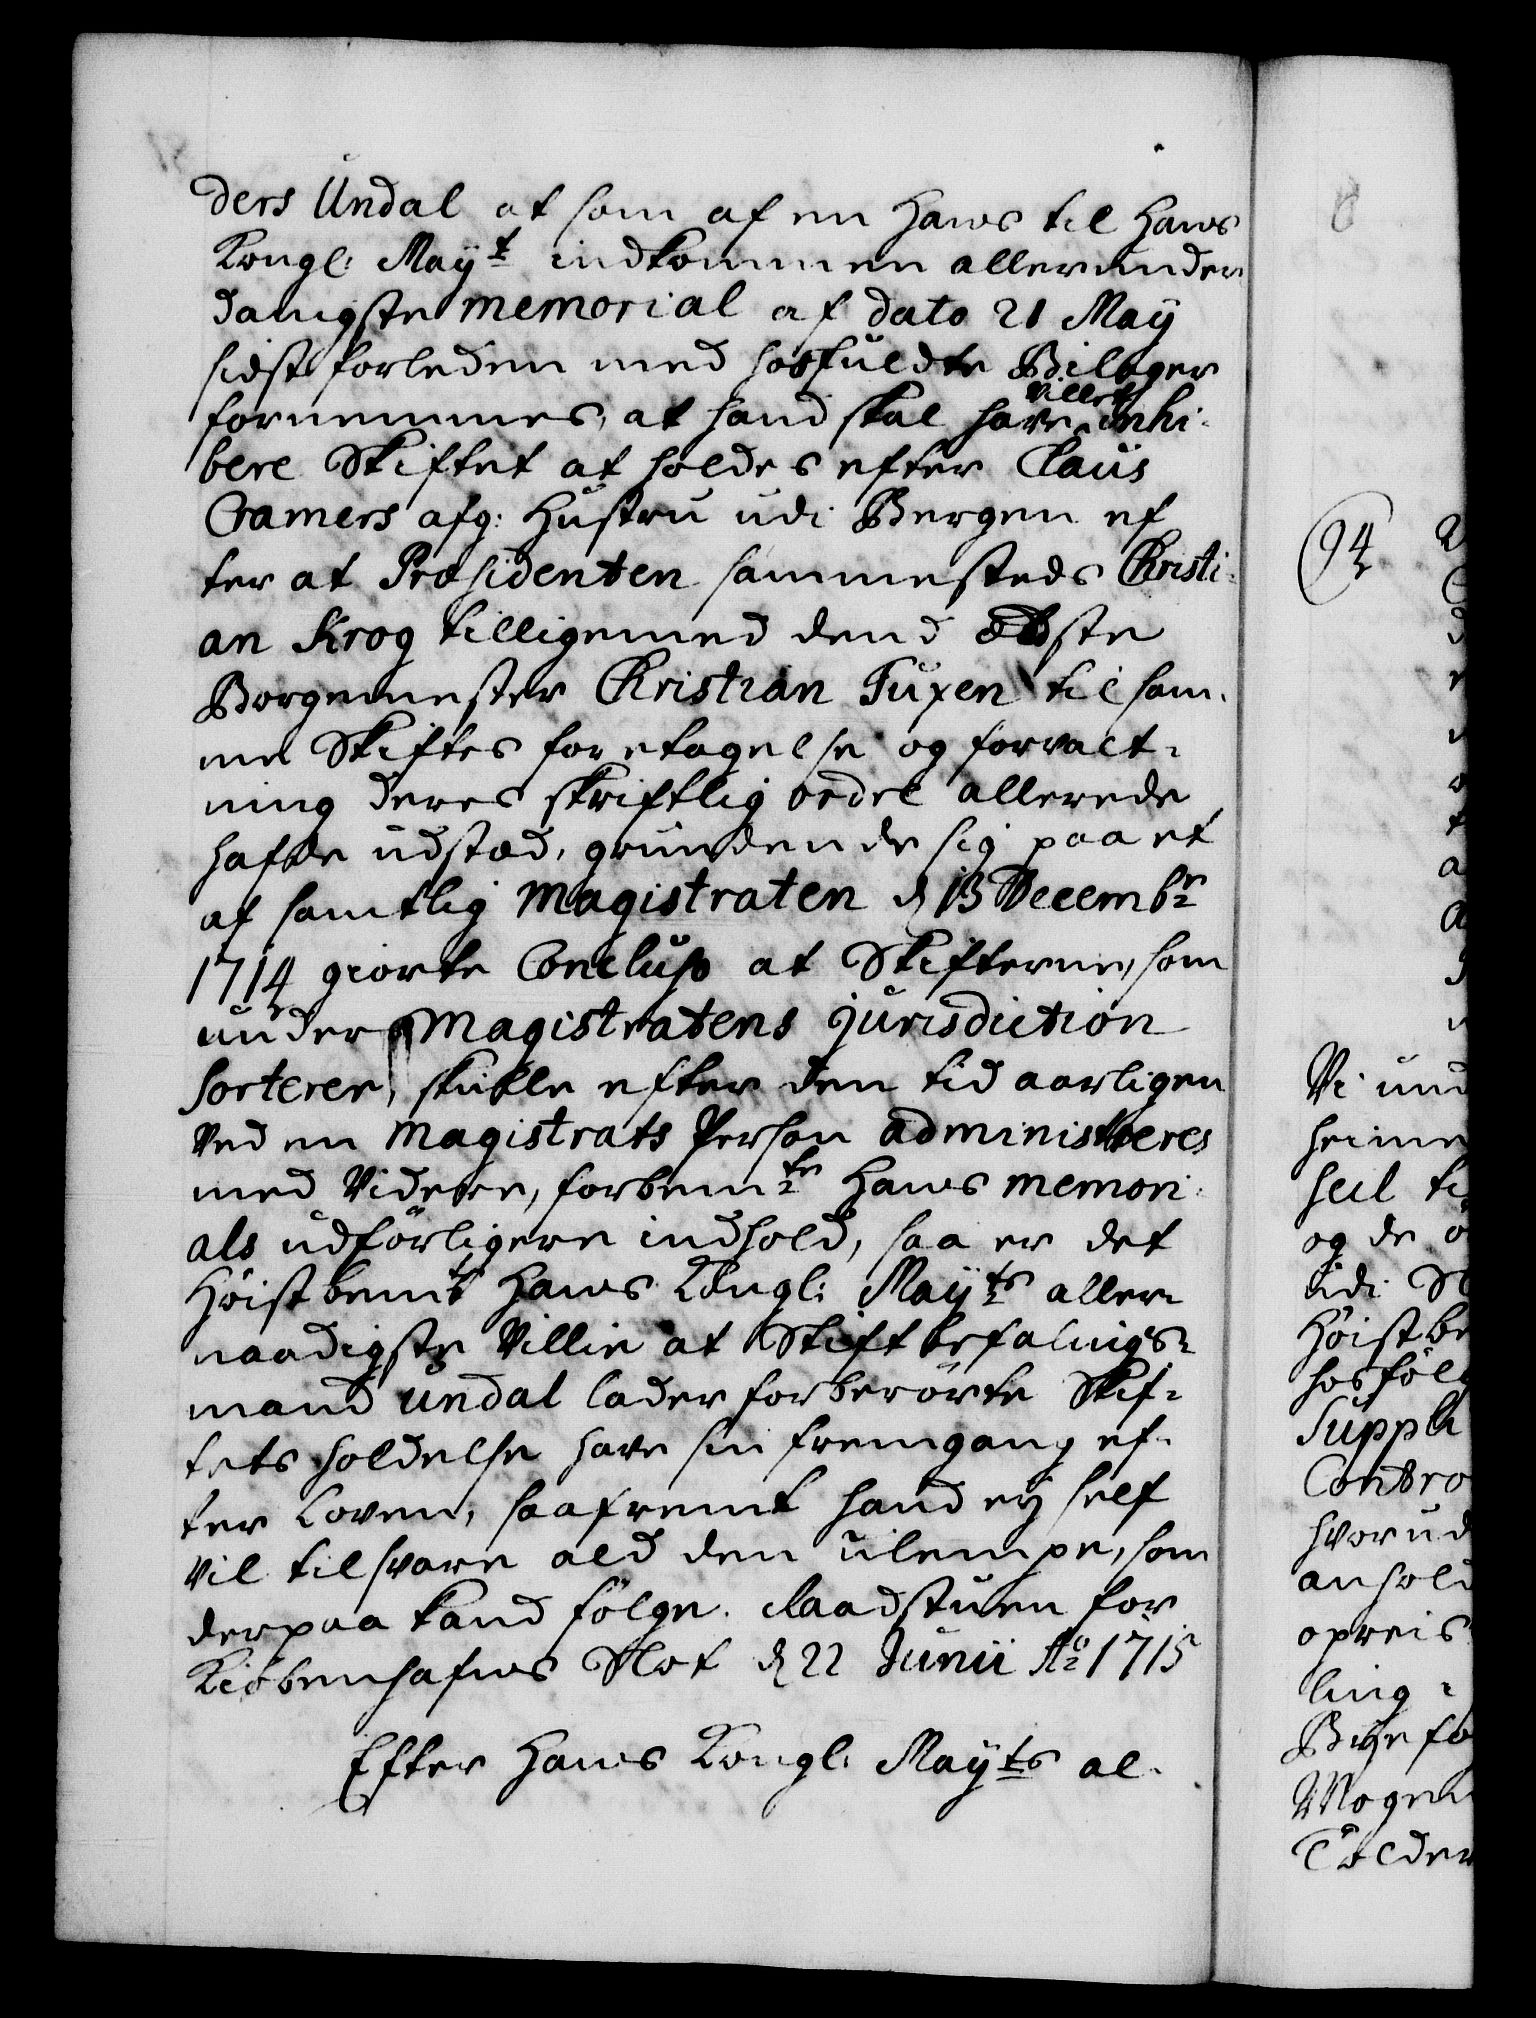 ders Undal at som af en Hans til Hans
Kongl: Mayt indkommen allerunder
danigste memorial af dato 21 May
sidst forleden med hosfuldte Bilager
fornemmes, at hand skal have villet inhi-
bere Skiftet at holdes efter Claus
Cramers afg: Hustru udi Bergen ef
ter at Præsidenten sammesteds Christi-
an Krog tilligemed dend ældste
Borgemester Christian Tuxen til sam-
me Skiftes foretagelse og forvalt-
ning deres skriftlig ordre allerede
hafde udstæd, grundende sig paa et
af samtlig Magistraten d 13 Decembr
1714 giorte Concluso at Skifterne, som
under Magistratens jurisdiction
sorterer, skulle efter den tid aarligen
ved en Magistrats Person administreres
med videre, forbemte Hans memori-
als udförligere indhold, saa er det
Höistbemte Hans Kongl: Mayts aller-
naadigste Villie at Stiftbefalings-
mand Undal lader forberörte Skif-
tets holdelse have sin fremgang ef-
ter Loven, saafremt hand ey self
vil tilsvare ald den ulempe, som
derpaa kand fölge. Raadstuen for
Kiøbenhafns Slot d 22 Junii Ao 1715
Efter Hans Kongl: Mayts al-
(94
Vi und
heime
heel ti
og de
udi
Höistbe
hosfölg
Suppli
Contro
hvorud
anhold
opreis
ling
Byefo
Mogen
Tolder